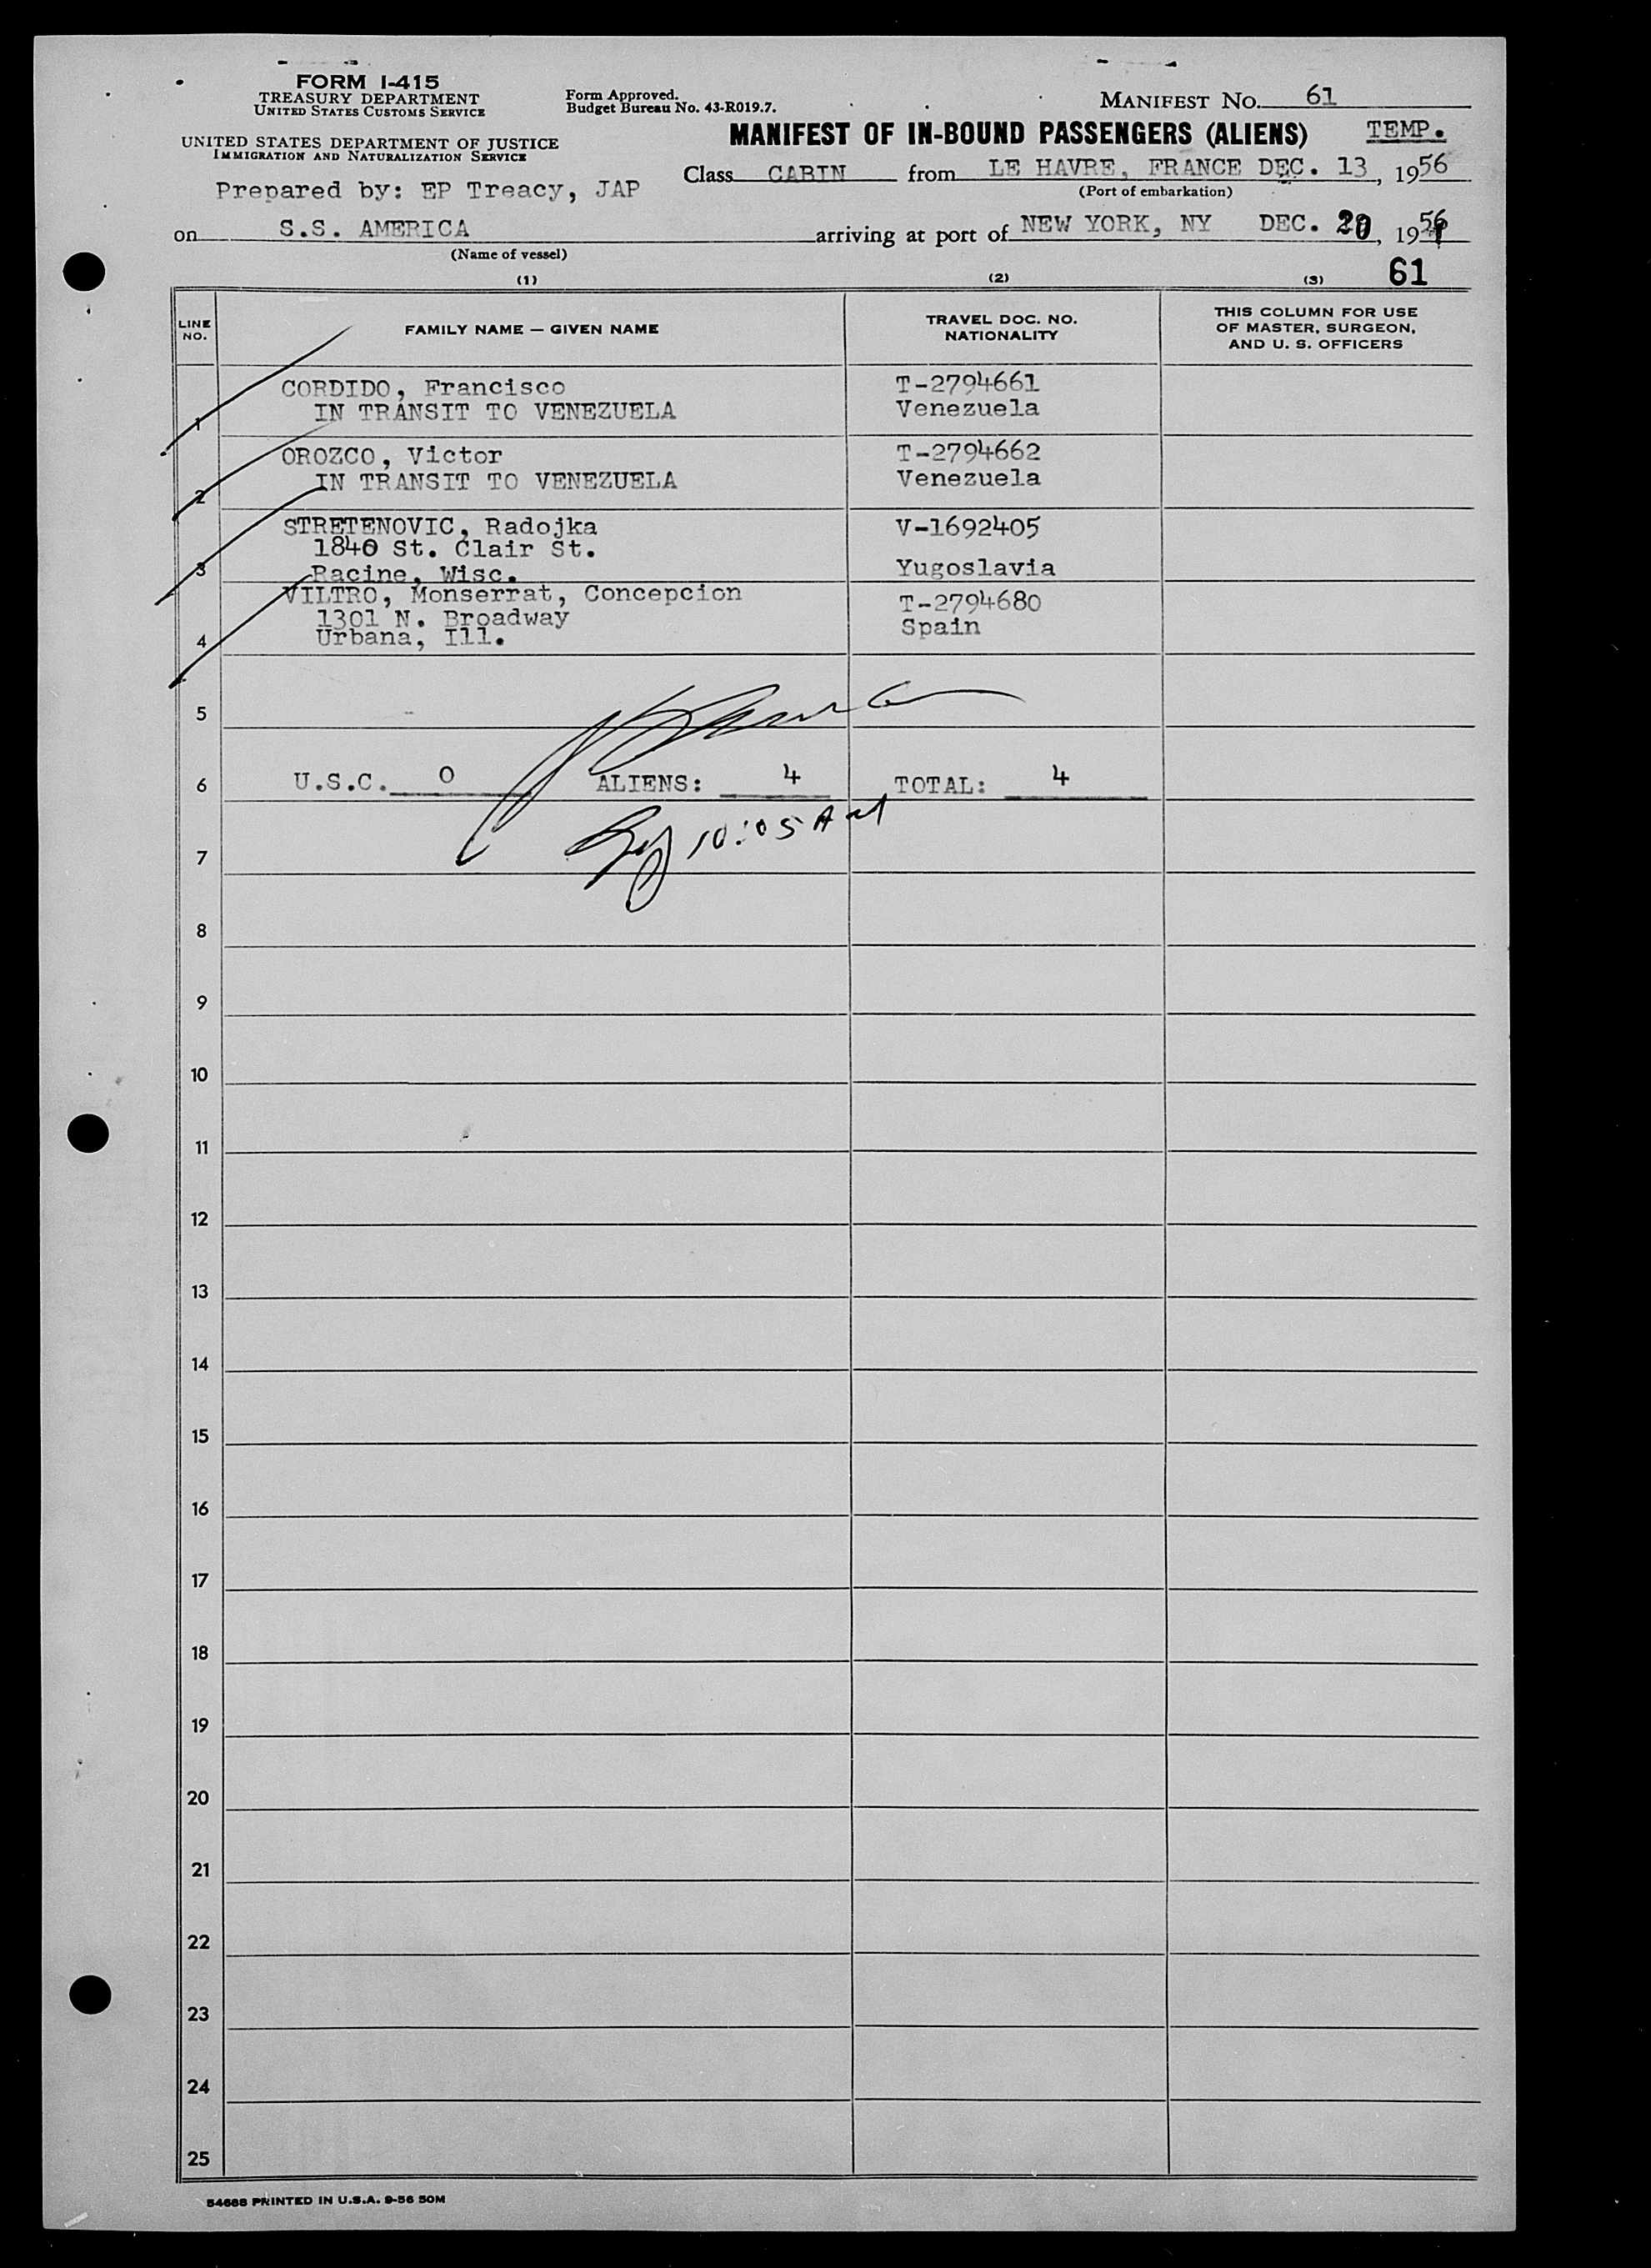 FORM I-415
TREASURY DEPARTMENT
UNITED STATES CUSTOMS SERVICE
UNITED STATES DEPARTMENT OF JUSTICE
IMMIGRATION AND NATURALIZATION SERVICE
Form Approved.
Budget Bureau No. 43-R019.7.
MANIFEST NO. 61
MANIFEST OF IN-BOUND PASSENGERS (ALIENS) TEMP.
Class CABIN from LE HAVRE, FRANCE DEC. 13, 1956
(Port of embarkation)
Prepared by: EP Treacy, JAP
on S.S. AMERICA arriving at port of NEW YORK, NY DEC. 20, 1956
(Name of vessel)
61
(1) (2) (3)
LINE NO. FAMILY NAME — GIVEN NAME TRAVEL DOC. NO. NATIONALITY THIS COLUMN FOR USE OF MASTER, SURGEON, AND U. S. OFFICERS
CORDIDO, Francisco T-2794661
1 IN TRANSIT TO VENEZUELA Venezuela
OROZCO, Victor T-2794662
2 IN TRANSIT TO VENEZUELA Venezuela
STRETENOVIC, Radojka V-1692405
1840 St. Clair St.
3 Racine, Wisc. Yugoslavia
VILTRO, Monserrat, Concepcion T-2794680
1301 N. Broadway Spain
4 Urbana, Ill.
5
6 U.S.C. 0 ALIENS: 4 TOTAL: 4
10:05 AM
7
8
9
10
11
12
13
14
15
16
17
18
19
20
21
22
23
24
25
54688 PRINTED IN U.S.A. 9-56 50M